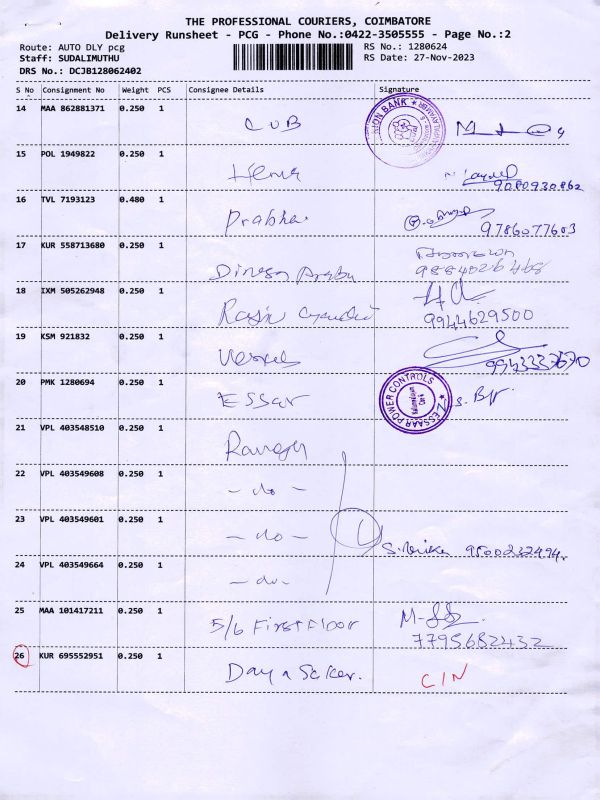 THE PROFESSIONAL COURIERS, COIMBATORE
Delivery Runsheet - PCG - Phone No.:0422-3505555 - Page No.:2
Route: AUTO DLY pcg RS No.: 1280624
Staff: SUDALIMUTHU RS Date: 27-Nov-2023
DRS No.: DCJB128062402
S No Consignment No Weight PCS Consignee Details Signature
14 MAA 862881371 0.250 1 CUB
15 POL 1949822 0.250 1 Hema 9080930862
16 TVL 7193123 0.480 1 Prabha. 9786077603
17 KUR 558713680 0.250 1 Dinesh Prabu 9884026468
18 IXM 505262948 0.250 1 9944629500
19 KSM 921832 0.250 1 9943337670
20 PMK 1280694 0.250 1 ESSar ZESSAAR POWER CONTROLS
21 VPL 403548510 0.250 1
22 VPL 403549608 0.250 1 - do -
23 VPL 403549601 0.250 1 - do - 9500232494
24 VPL 403549664 0.250 1 - do -
25 MAA 101417211 0.250 1 5/6 First Floor 7795682432
26 KUR 695552951 0.250 1 CIN